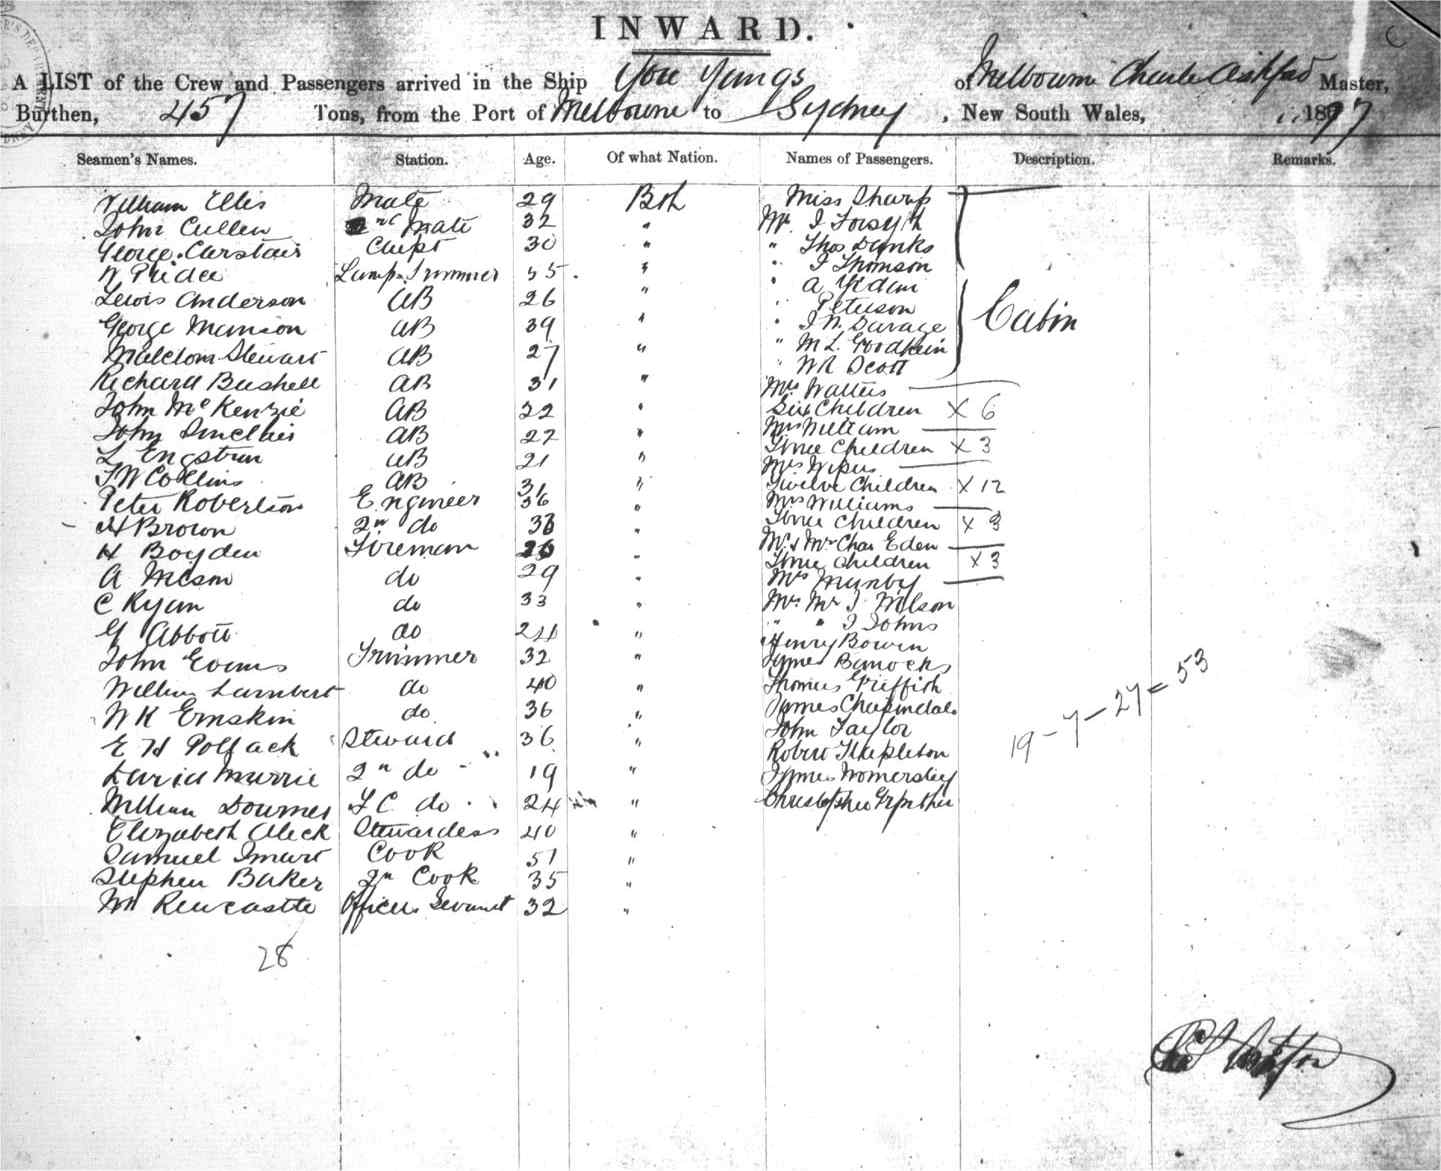 INWARD.
A LIST of the Crew and Passengers arrived in the Ship You Yangs of Melbourne Charles Ashford Master,
Burthen, 457 Tons, from the Port of Melbourne to Sydney, New South Wales, 1897
Seamen's Names. Station. Age. Of what Nation. Names of Passengers. Description. Remarks.
William Ellis Mate 29 Brh Miss Sharp
John Cullen 2nd Mate 32 " Mr. J Forsyth
George Carstair Carpt 30 " " Thos Danks
W Pridee Lamp Trimmer 55 " " J Thomson
Lewis Anderson AB 26 " " A
George Manson AB 39 " " Peterson
" J N Savage
Malcolm Stewart AB 27 " " M L
" W R Scott
Cabin
Richard Bushell AB 31 " Mrs Walters
John McKenzie AB 22 " Six Children X 6
John Sinclair AB 27 " Mrs William
Three Children X 3
L Engstrom AB 21 " Mrs
J W Collins AB 31 " Twelve Children X 12
Peter Robertson Engineer 36 " Mrs Williams
H Brown 2nd do 36 " Three Children X 3
H Boyden Fireman 26 " Mr & Mrs Chas Eden
Three Children X 3
A do 29 " Mrs Munby
C Ryan do 33 " Mrs Mr J Wilson
G Abbott do 24 " " " J Johns
Henry Bowen
John Evans Trimmer 32 " James
William Lambert do 40 " Thomas Griffith
W K Emskin do 36 " James
John Taylor
E H Pollack Steward 36 " Robert
David Murrie 2nd do 19 " James Womersley
William Downes F C do 24 " Christopher
Elizabeth Aleck Stewardess 40 "
Samuel Smart Cook 51 "
Stephen Baker 2nd Cook 35 "
Wm Rencastle Officers Servant 32 "
19 - 7 - 27 = 53
28
Chas Ashford